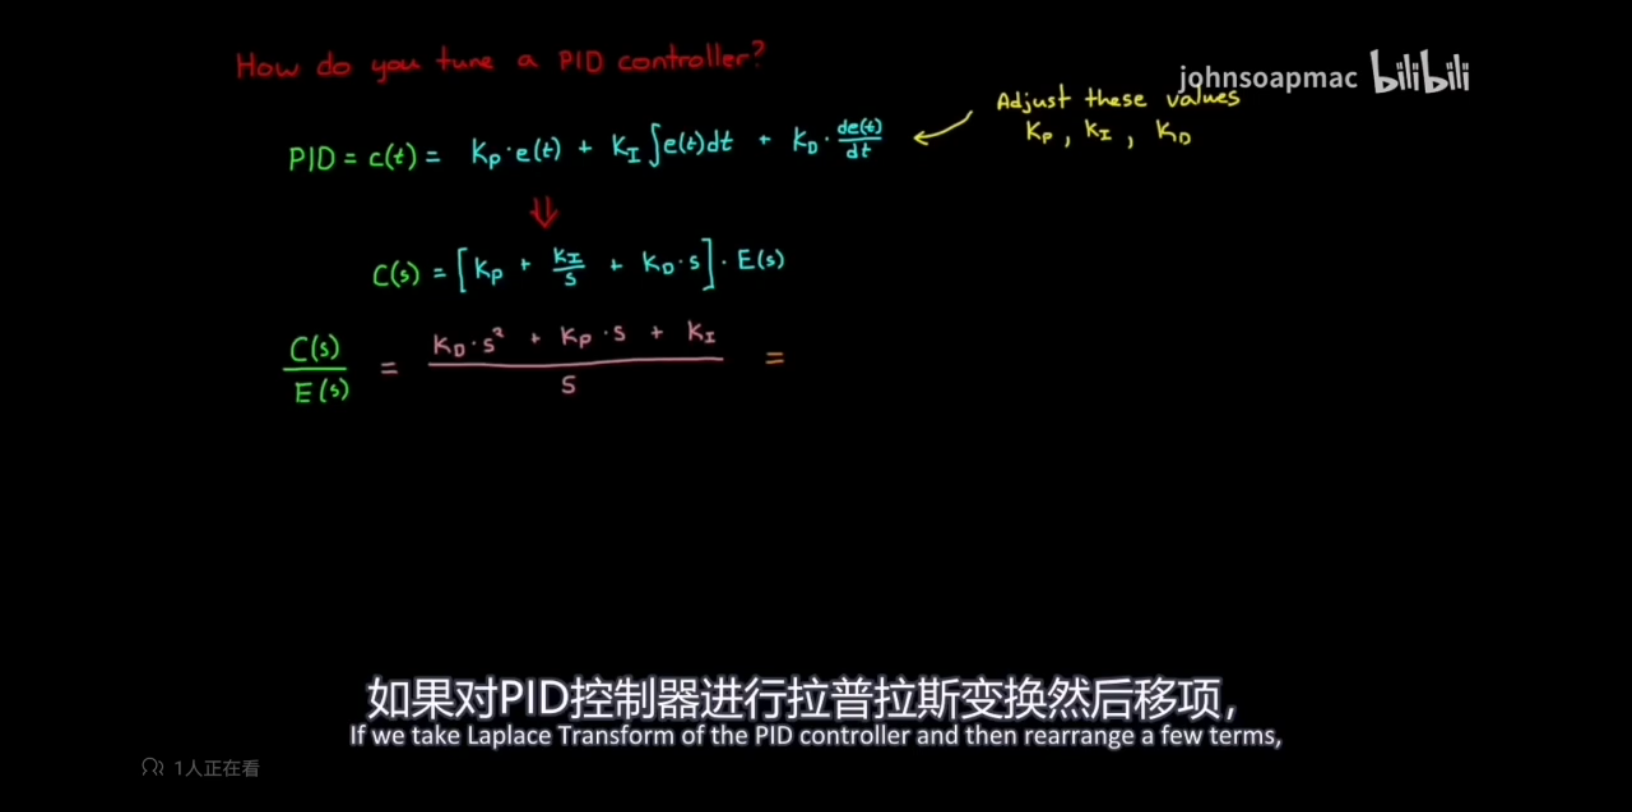 How do you tune a PID controller?
johnsoapmac bilibili
Adjust these values
K_P, K_I, K_D
PID = c(t) = K_P · e(t) + K_I ∫e(t)dt + K_D · de(t)/dt
⇓
C(s) = [K_P + K_I/s + K_D · s] · E(s)
C(s)/E(s) = (K_D · s² + K_P · s + K_I)/s =
如果对PID控制器进行拉普拉斯变换然后移项，
If we take Laplace Transform of the PID controller and then rearrange a few terms,
1人正在看